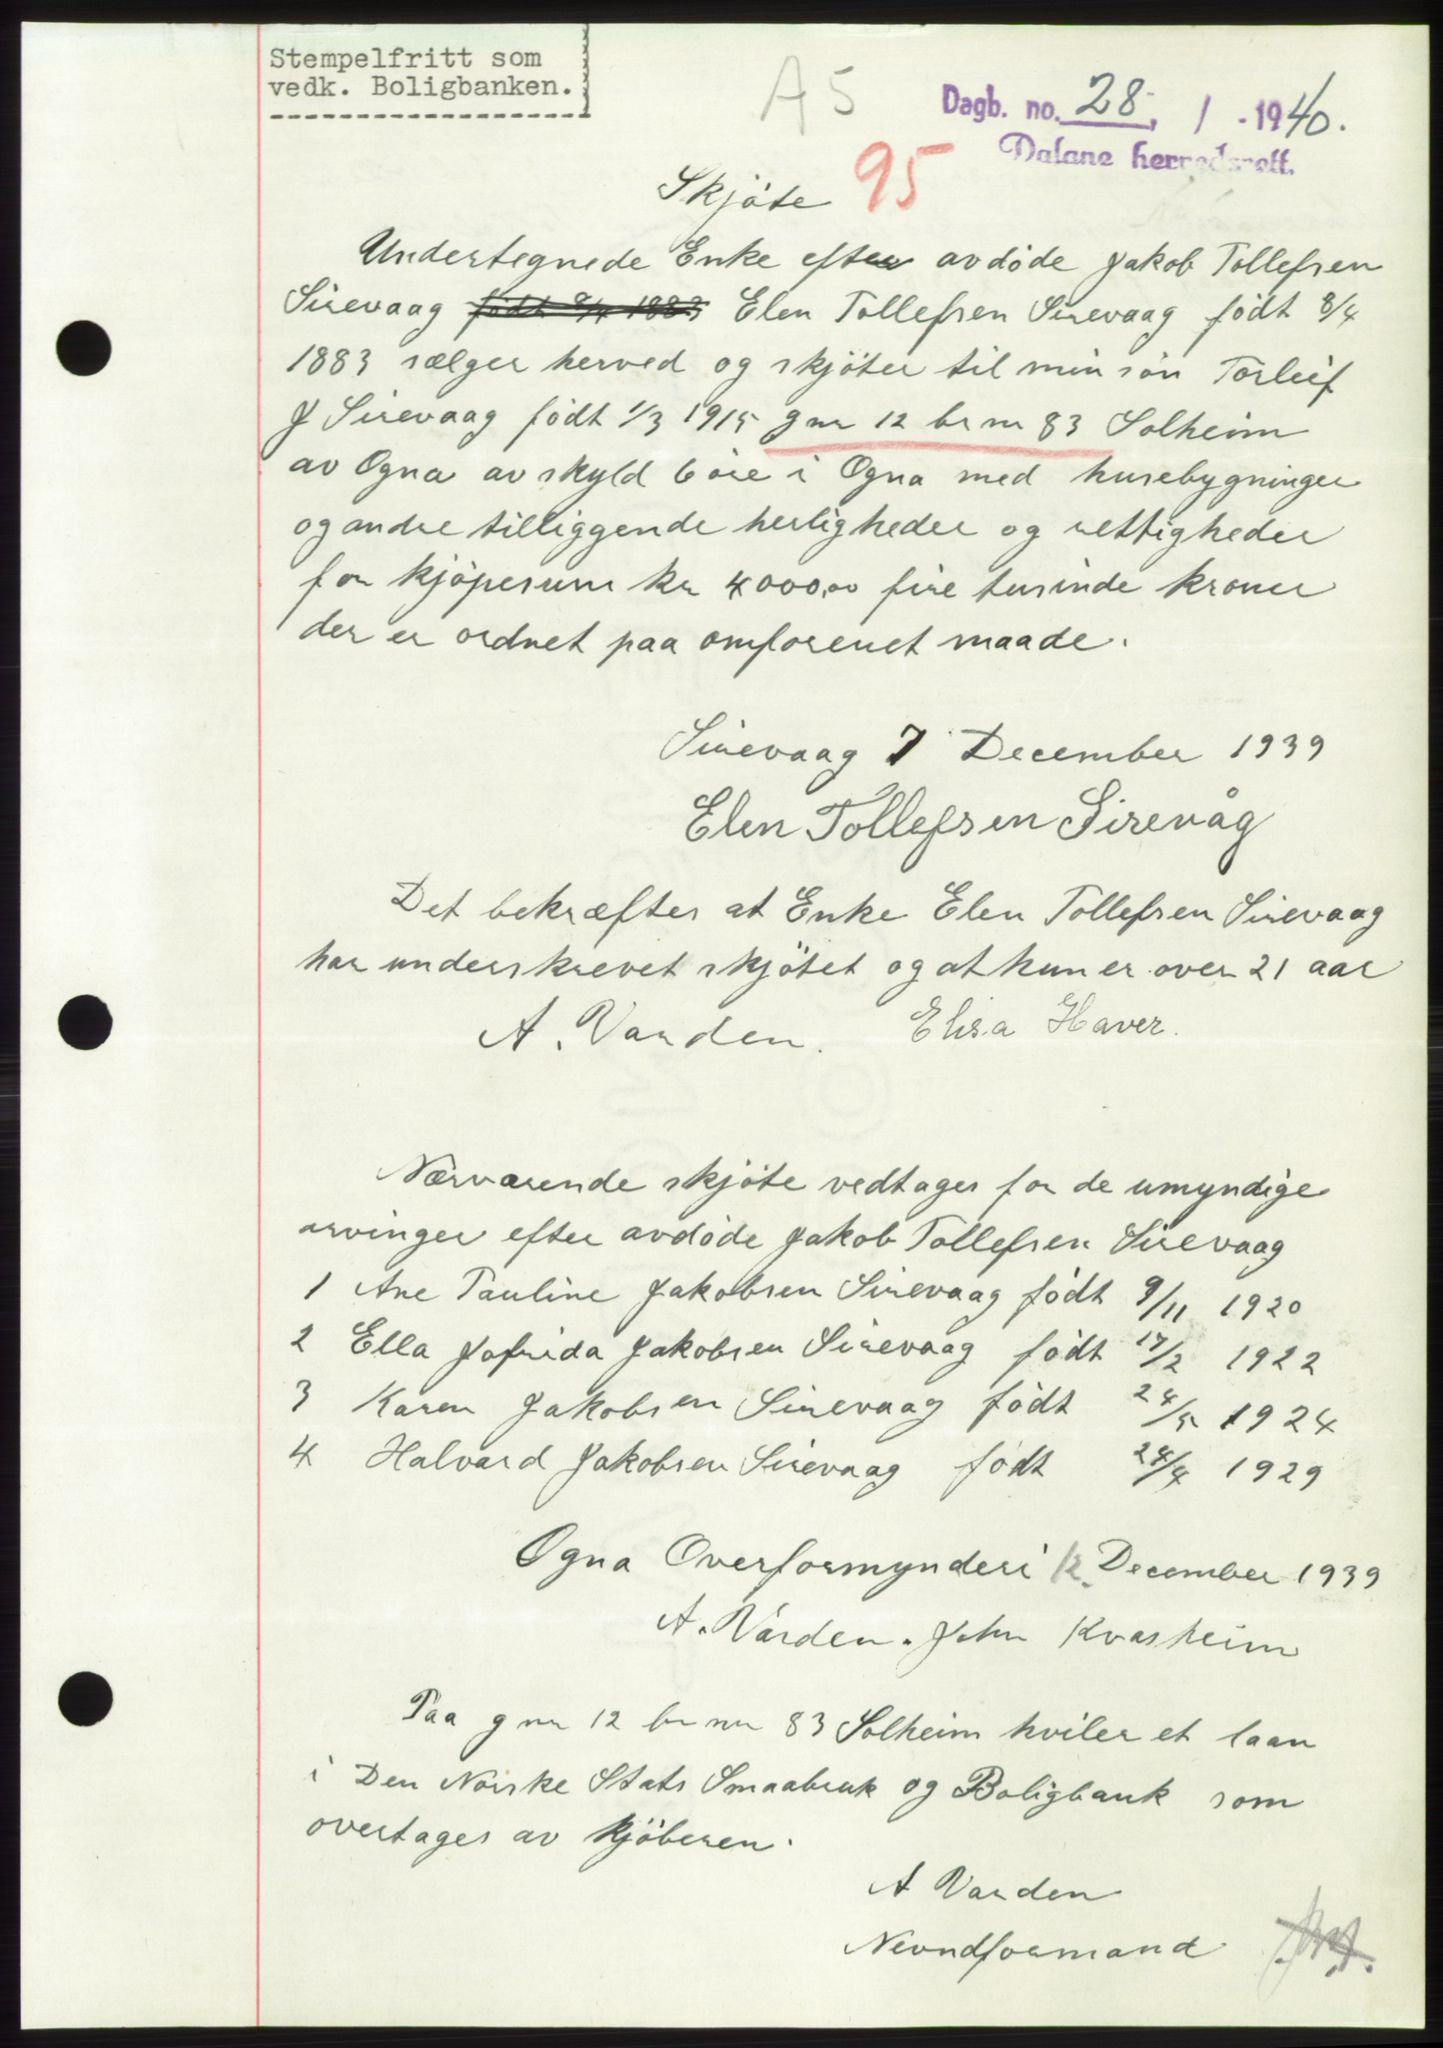 Stempelfritt som
vedk. Boligbanken.
A 5
Dagb. no. 28, / - 1940.
Dalane herredsrett.
95
Skjøte
Undertegnede Enke efter avdøde Jakob Tollefsen
Sirevaag født 8/4 1883 Elen Tollefsen Sirevaag født 8/4
1883 sælger herved og skjøter til min søn Torleif
J Sirevaag født 1/3 1915 gnr 12 br nr 83 Solheim
av Ogna av skyld 6 øre i Ogna med husebygninger
og andre tilliggende herligheder og rettigheder
for kjøpesum kr 4000,00 fire tusinde kroner
der er ordnet paa omforenet maade.
Sirevaag 7 December 1939
Elen Tollefsen Sirevåg
Det bekræftes at Enke Elen Tollefsen Sirevaag
har underskrevet skjøtet og at hun er over 21 aar
A. Varden. Elisa Haver.
Nærværende skjøte vedtages for de umyndige
arvinger efter avdøde Jakob Tollefsen Sirevaag
1 Ane Pauline Jakobsen Sirevaag født 9/11 1920
2 Ella Jofrida Jakobsen Sirevaag født 17/2 1922
3 Karen Jakobsen Sirevaag født 24/5 1924
4 Halvard Jakobsen Sirevaag født 24/4 1929
Ogna Overformynderi 12. December 1939
A. Varden. John Kvasheim
Paa gnr 12 br nr 83 Solheim hviler et laan
i Den Norske Stats Smaabruk og Boligbank som
overtages av kjøberen.
A Varden
Nevndformand